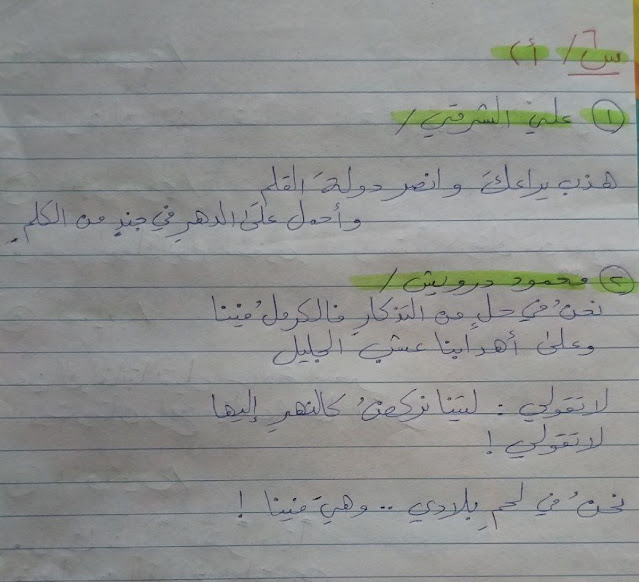 س٦/ أ)
١ علي الشرقي/
هذب يراعكَ وانصر دولةَ القلم
وأحمل على الدهرِ في جندٍ من الكلمِ
٢ محمود درويش/
نحنُ في حلٍ من التذكارِ فالكرملُ فينا
وعلى أهدابنا عشب الجليل
لاتقولي : ليتنا نركضُ كالنهرِ إليها
لاتقولي !
نحنُ في لحمِ بلادي .. وهيَ فينا !